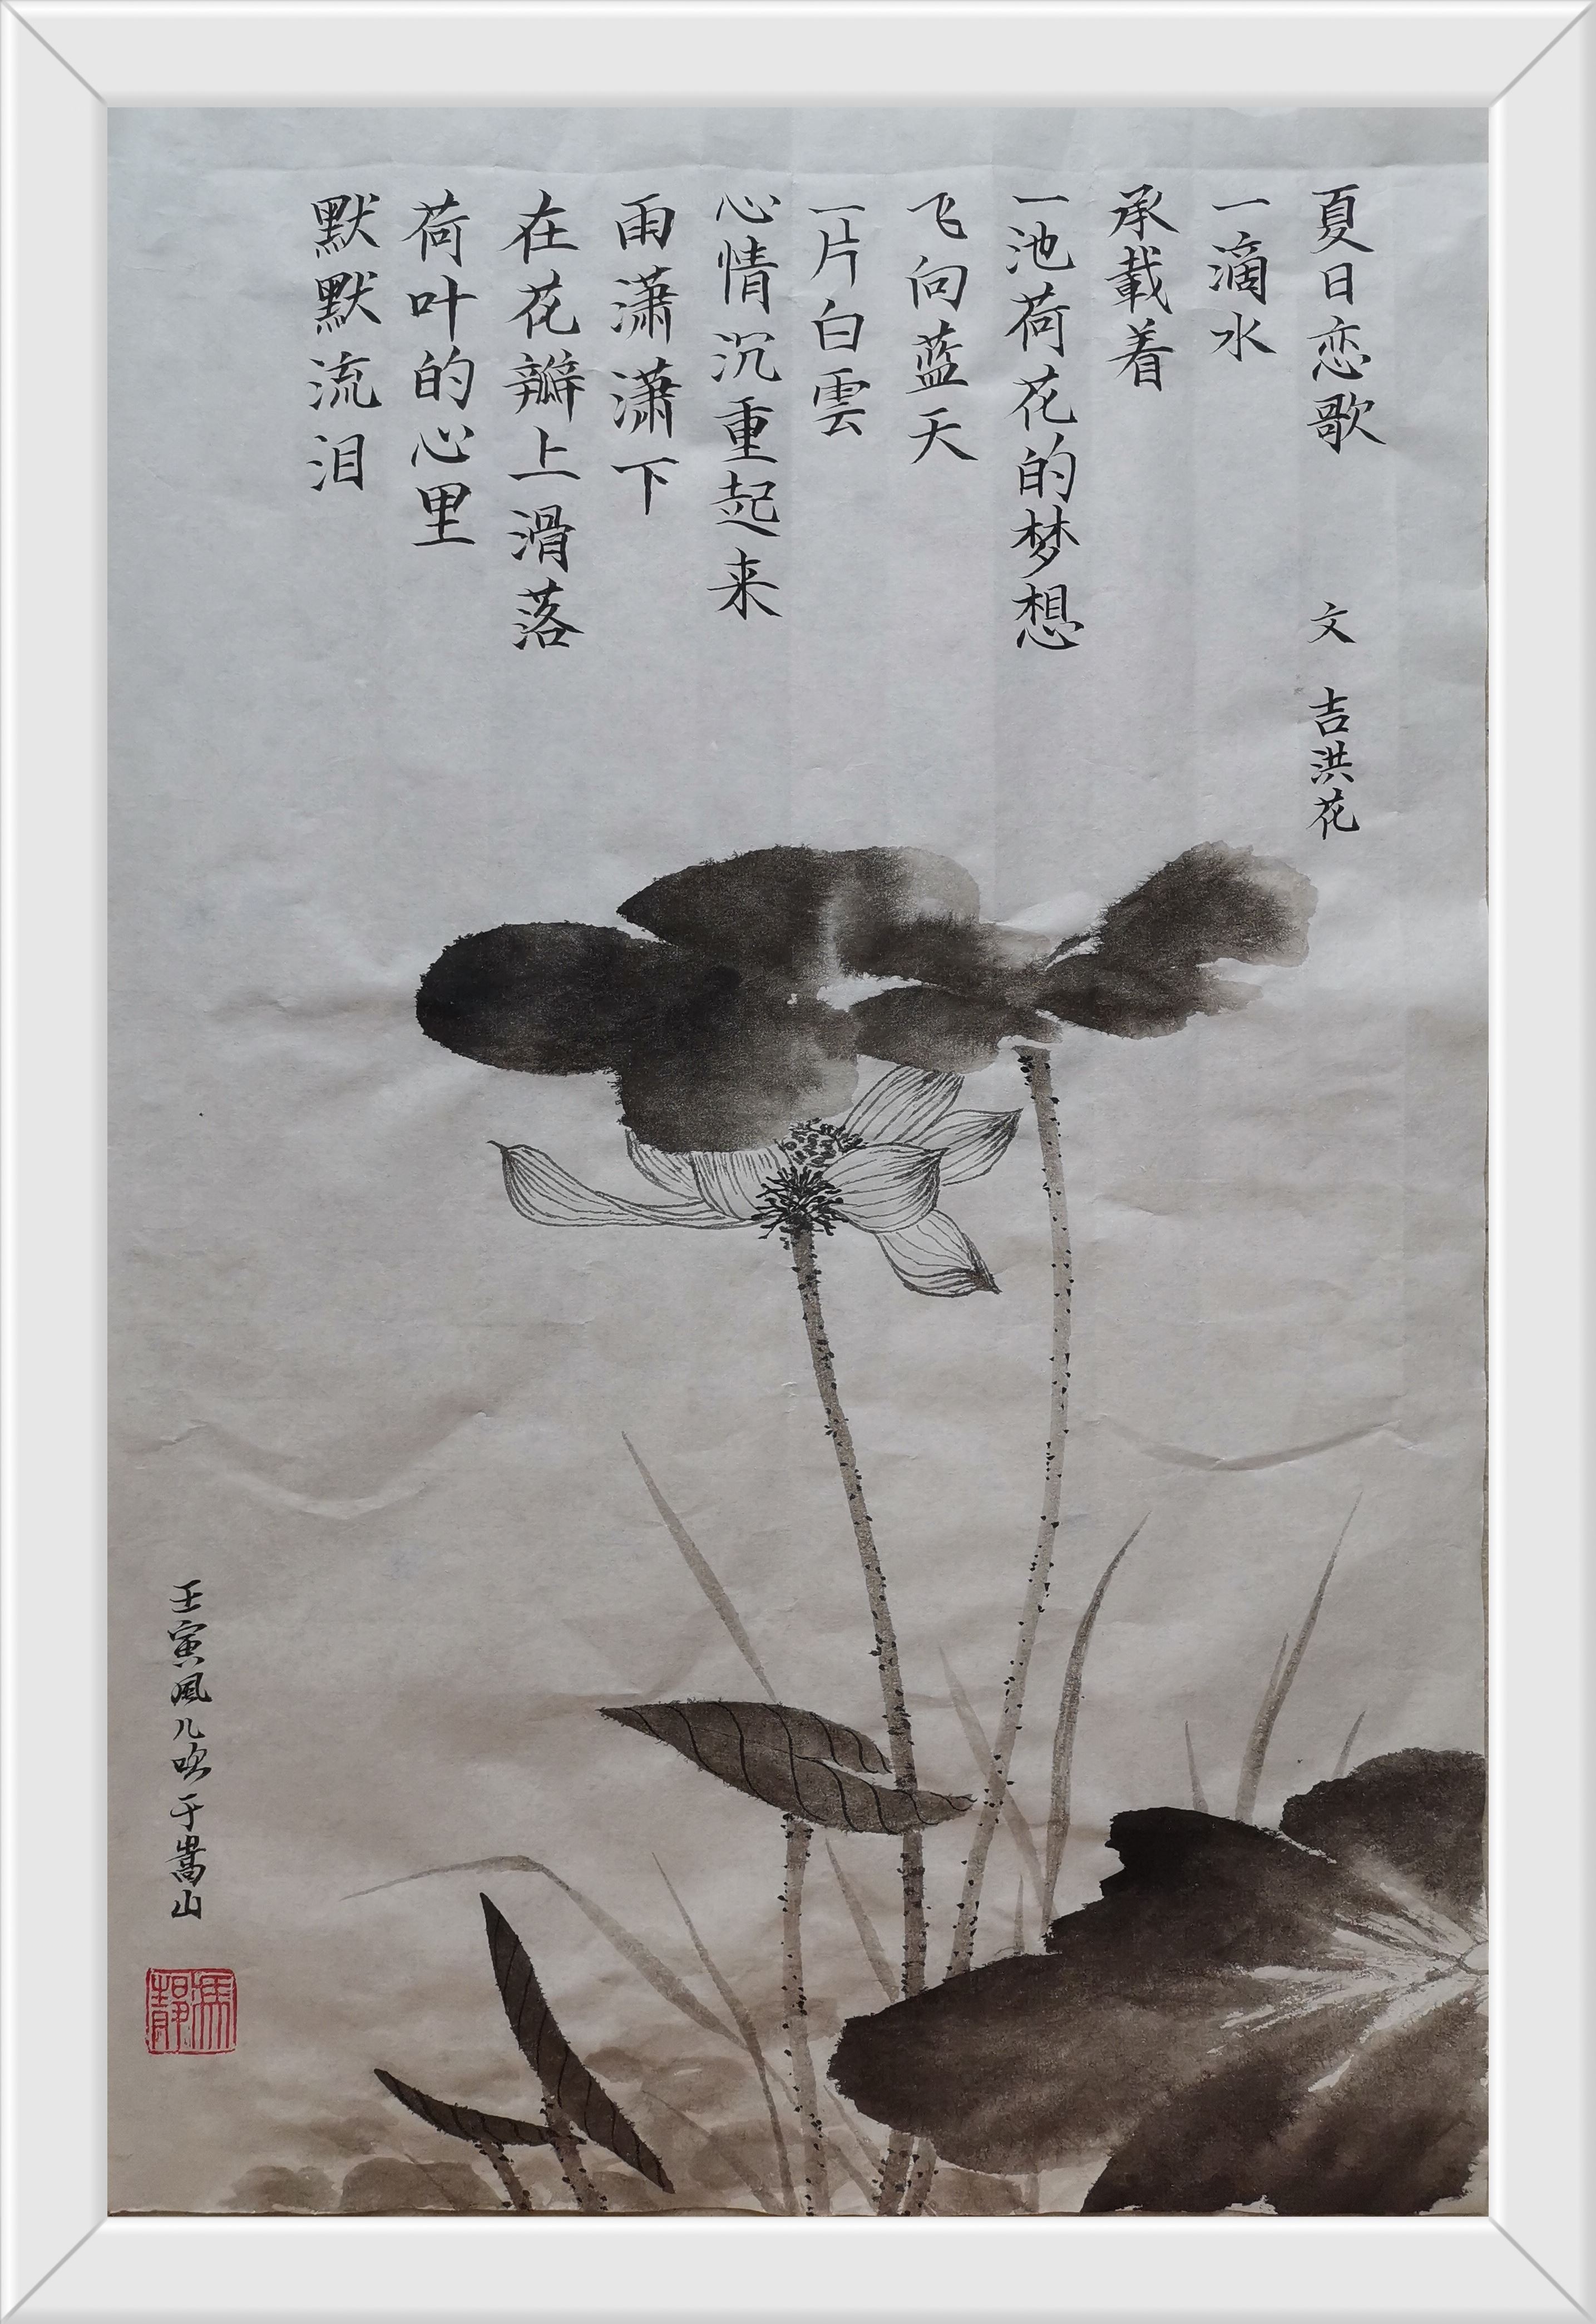 夏日恋歌 文 吉洪花
一滴水
承載着
一池荷花的梦想
飞向蓝天
一片白雲
心情沉重起来
雨潇潇下
在花瓣上滑落
荷叶的心里
默默流泪
壬寅風儿吹于嵩山